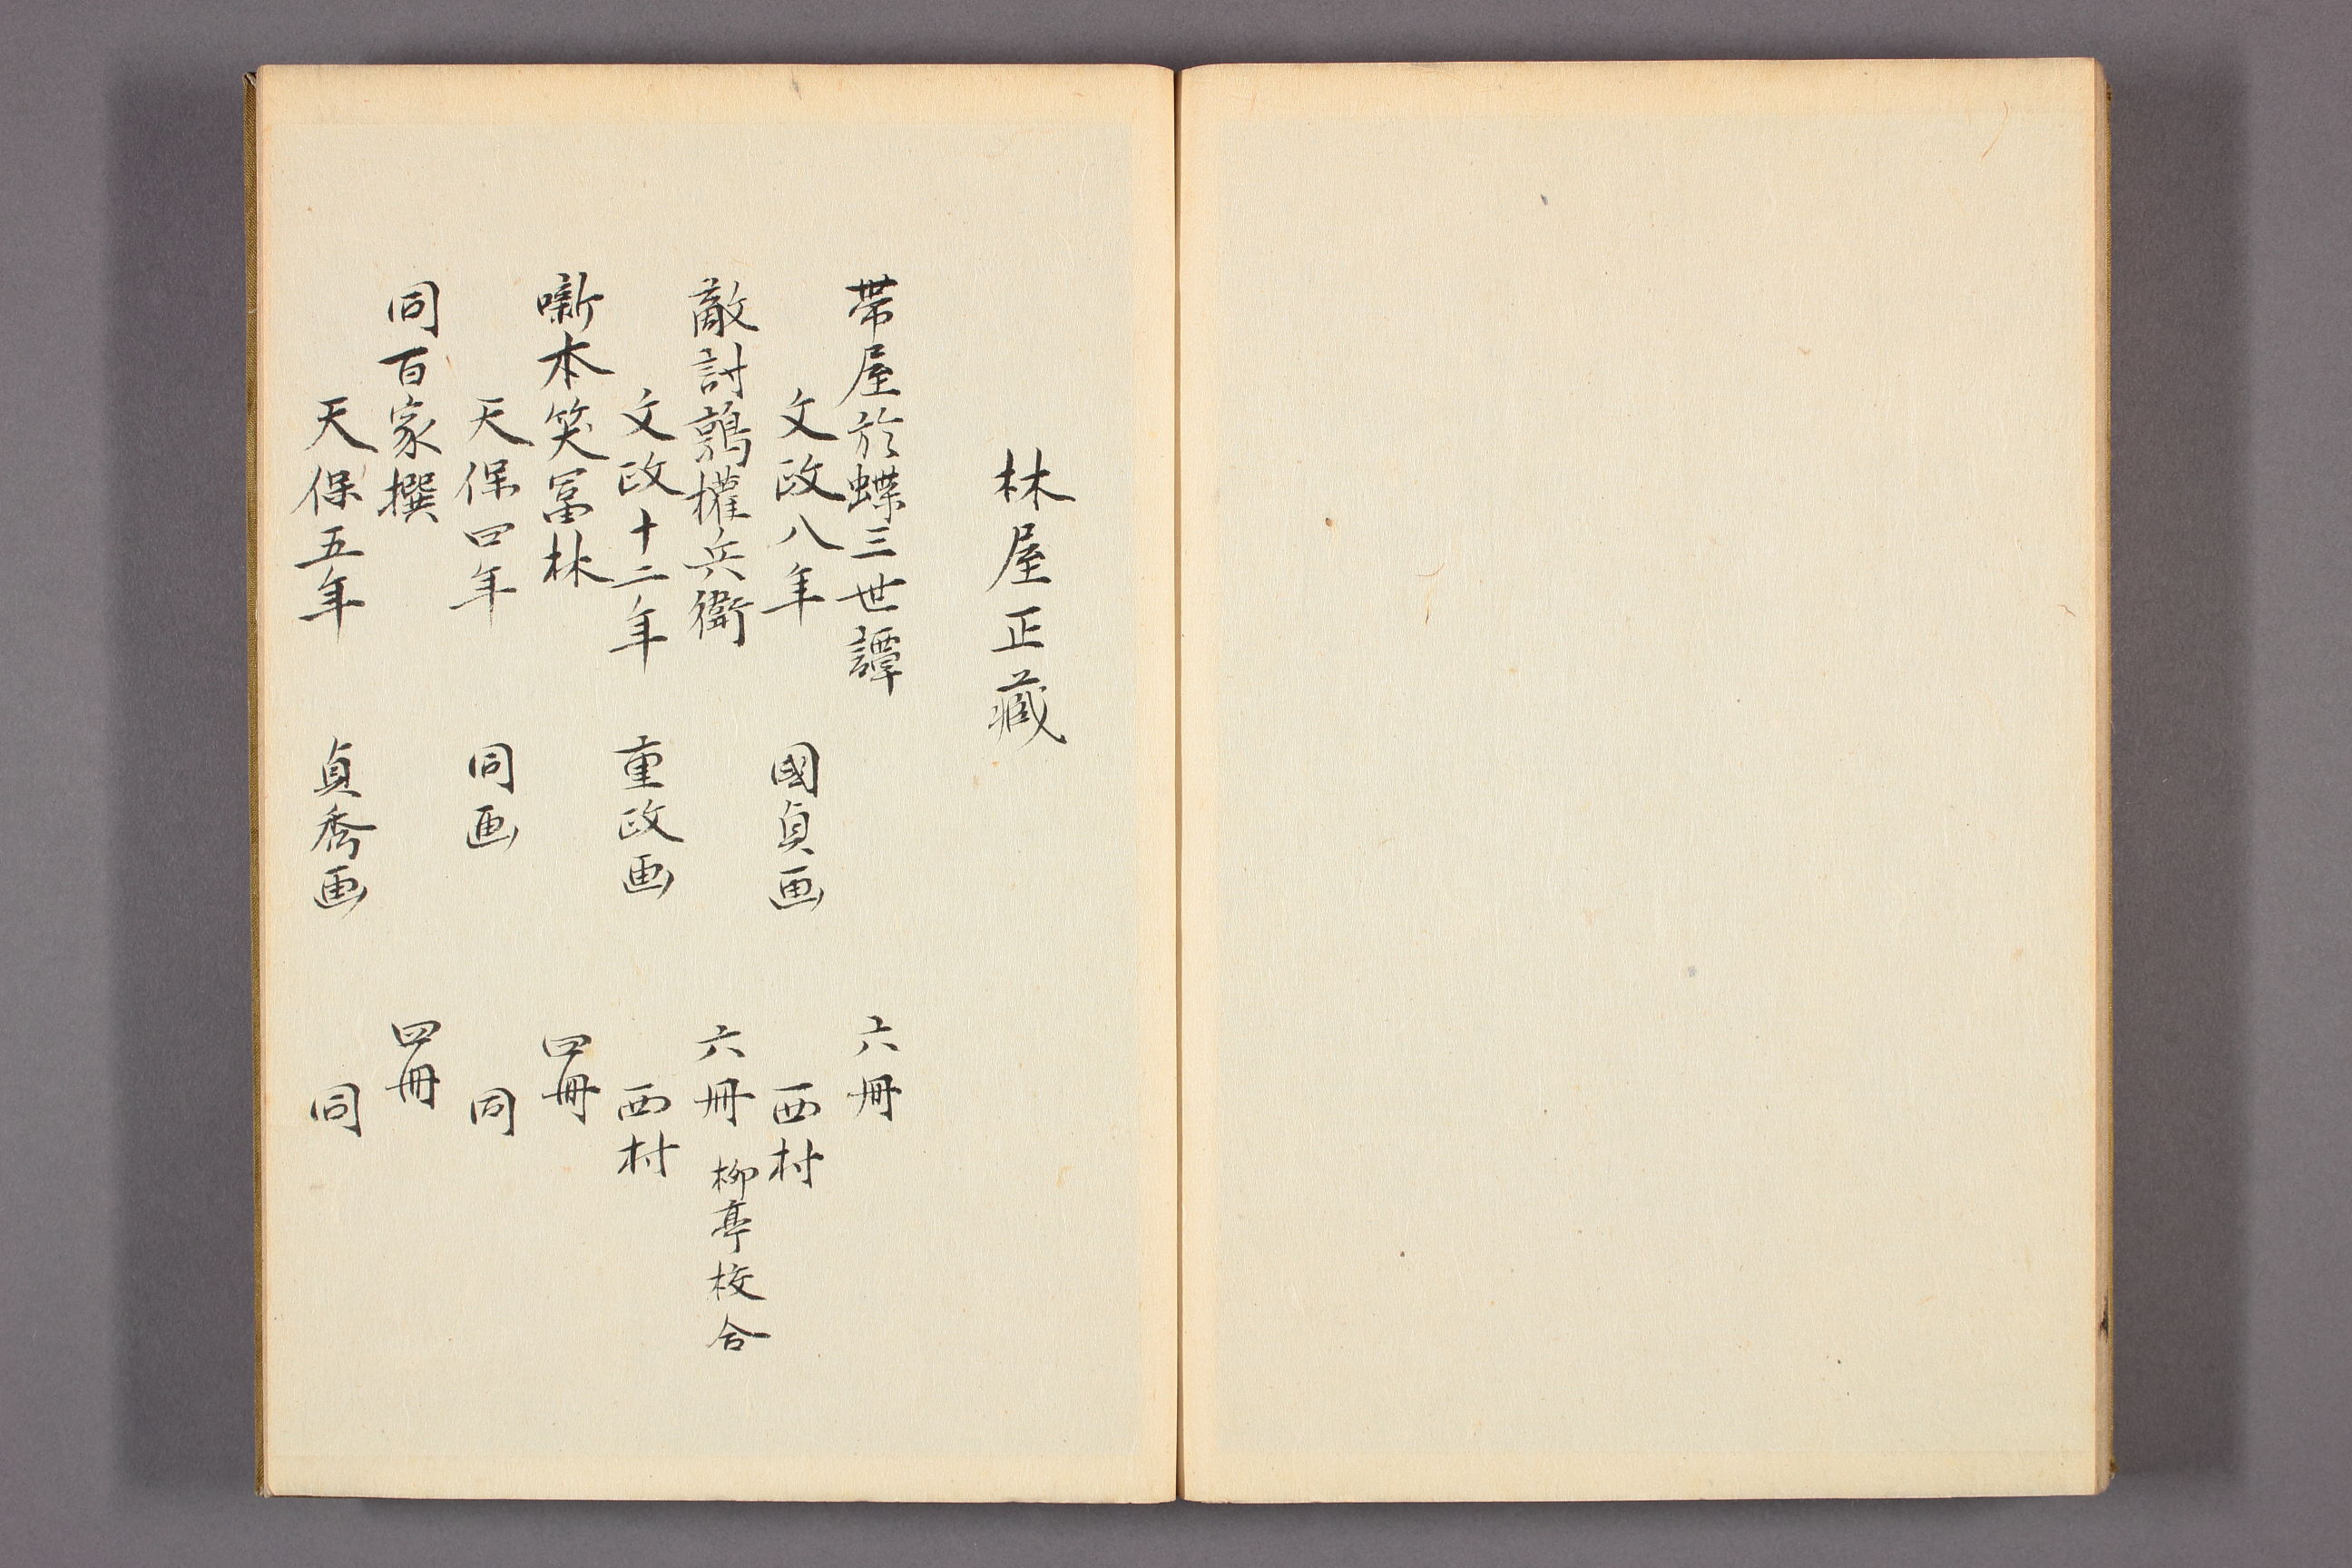 林屋正藏
帯屋於蝶三世譚 六冊
文政八年 國貞画 西村
敵討鶉權兵衛 六冊 柳亭校合
文政十二年 重政画 西村
噺本笑冨林 四冊
天保四年 同画 同
同百家撰 四冊
天保五年 貞秀画 同